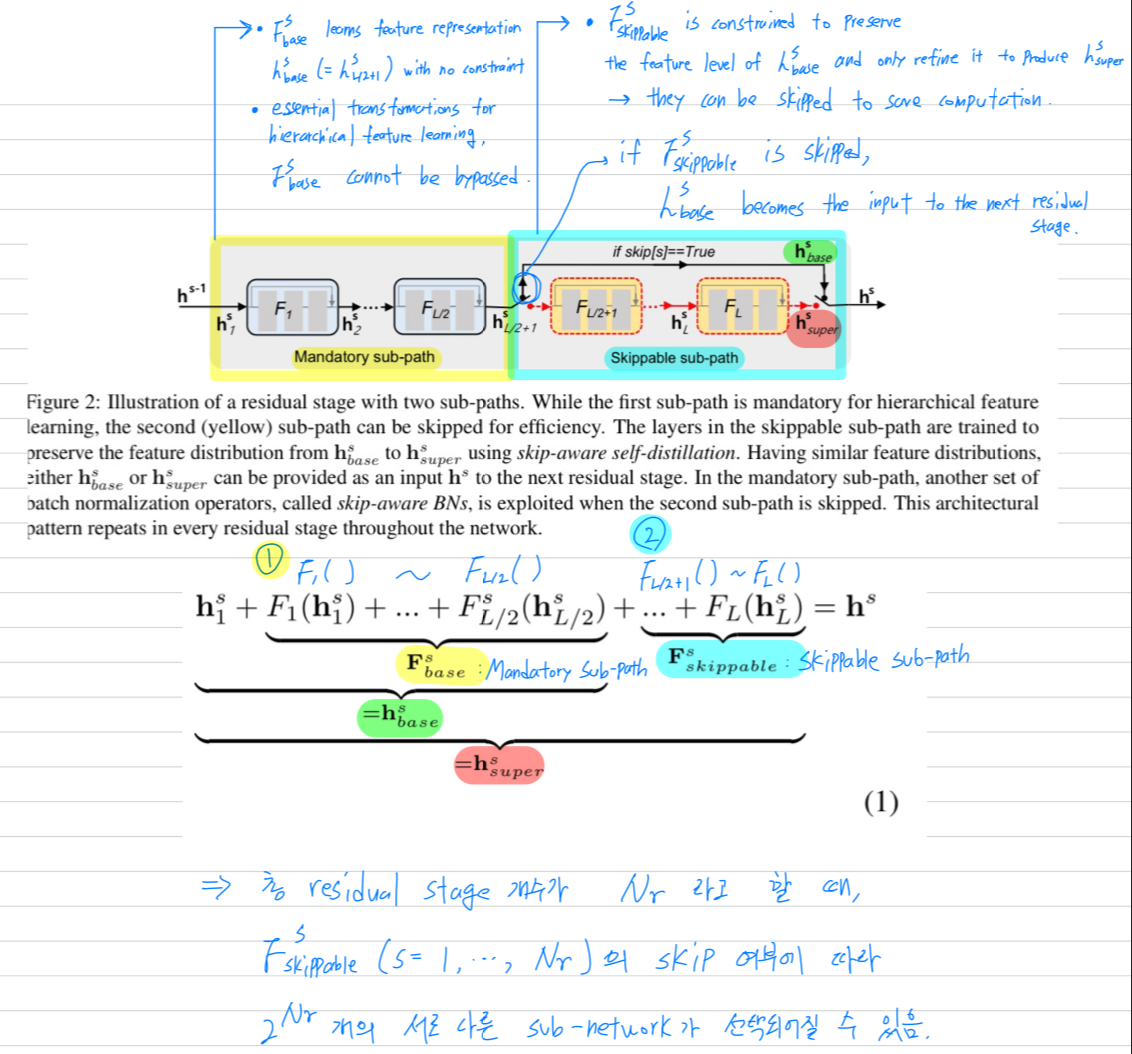 • F^s_base learns feature representation
h^s_base (= h^s_L/2+1) with no constraint
• essential transformations for
hierarchical feature learning,
F^s_base cannot be bypassed.
• F^s_skippable is constrained to preserve
the feature level of h^s_base and only refine it to produce h^s_super
→ they can be skipped to save computation.
if F^s_skippable is skipped,
h^s_base becomes the input to the next residual
stage.
if skip[s]==True
h^s_base
h^s-1
h^s_1
F_1
h^s_2
F_L/2
h^s_L/2+1
F_L/2+1
h^s_L
F_L
h^s_super
h^s
Mandatory sub-path
Skippable sub-path
Figure 2: Illustration of a residual stage with two sub-paths. While the first sub-path is mandatory for hierarchical feature
learning, the second (yellow) sub-path can be skipped for efficiency. The layers in the skippable sub-path are trained to
preserve the feature distribution from h^s_base to h^s_super using skip-aware self-distillation. Having similar feature distributions,
either h^s_base or h^s_super can be provided as an input h^s to the next residual stage. In the mandatory sub-path, another set of
batch normalization operators, called skip-aware BNs, is exploited when the second sub-path is skipped. This architectural
pattern repeats in every residual stage throughout the network.
① F_1( ) ~ F_L/2( )
② F_L/2+1( ) ~ F_L( )
h^s_1 + F_1(h^s_1) + ... + F^s_L/2(h^s_L/2) + ... + F_L(h^s_L) = h^s
F^s_base : Mandatory sub-path
F^s_skippable : skippable sub-path
=h^s_base
=h^s_super
(1)
⇒ 총 residual stage 개수가 Nr 라고 할 때,
F^s_skippable (s= 1, ..., Nr) 의 skip 여부에 따라
2^Nr 개의 서로 다른 sub-network가 선택되어질 수 있음.